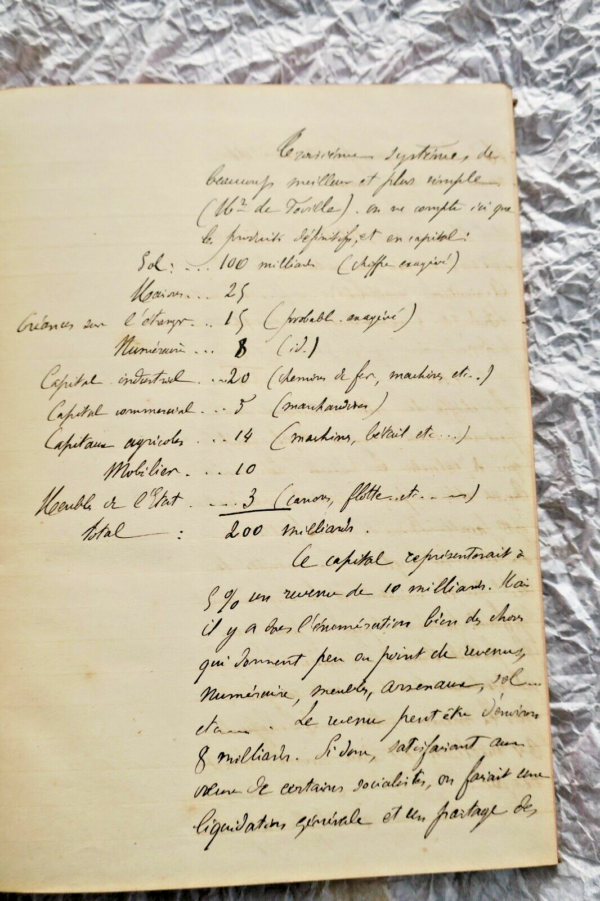 Troisième système de
beaucoup meilleur et plus simple
(Mr. de Foville). on ne compte ici que
les produits définitifs, et en capital :
Sol : ... 100 milliards (chiffre exagéré)
Maisons ... 25
Créances sur l'étranger ... 15 (probabl. exagéré)
Numéraire ... 8 (id.)
Capital industriel ... 20 (chemins de fer, machines etc...)
Capital commercial ... 5 (marchandises)
Capitaux agricoles ... 14 (machines, bétail etc...)
Mobilier ... 10
Meubles de l'Etat ... 3 (canons, flotte..etc.....)
Total : 200 milliards.
Ce capital représenterait à
5 % un revenu de 10 milliards. Mais
il y a dans l'énumération bien des choses
qui donnent peu ou point de revenus,
Numéraire, meubles, arsenaux, sol...
etc.... . Le revenu peut être d'environ
8 milliards. Si donc, satisfaisant aux
vœux de certains socialistes, on faisait une
liquidation générale et un partage des